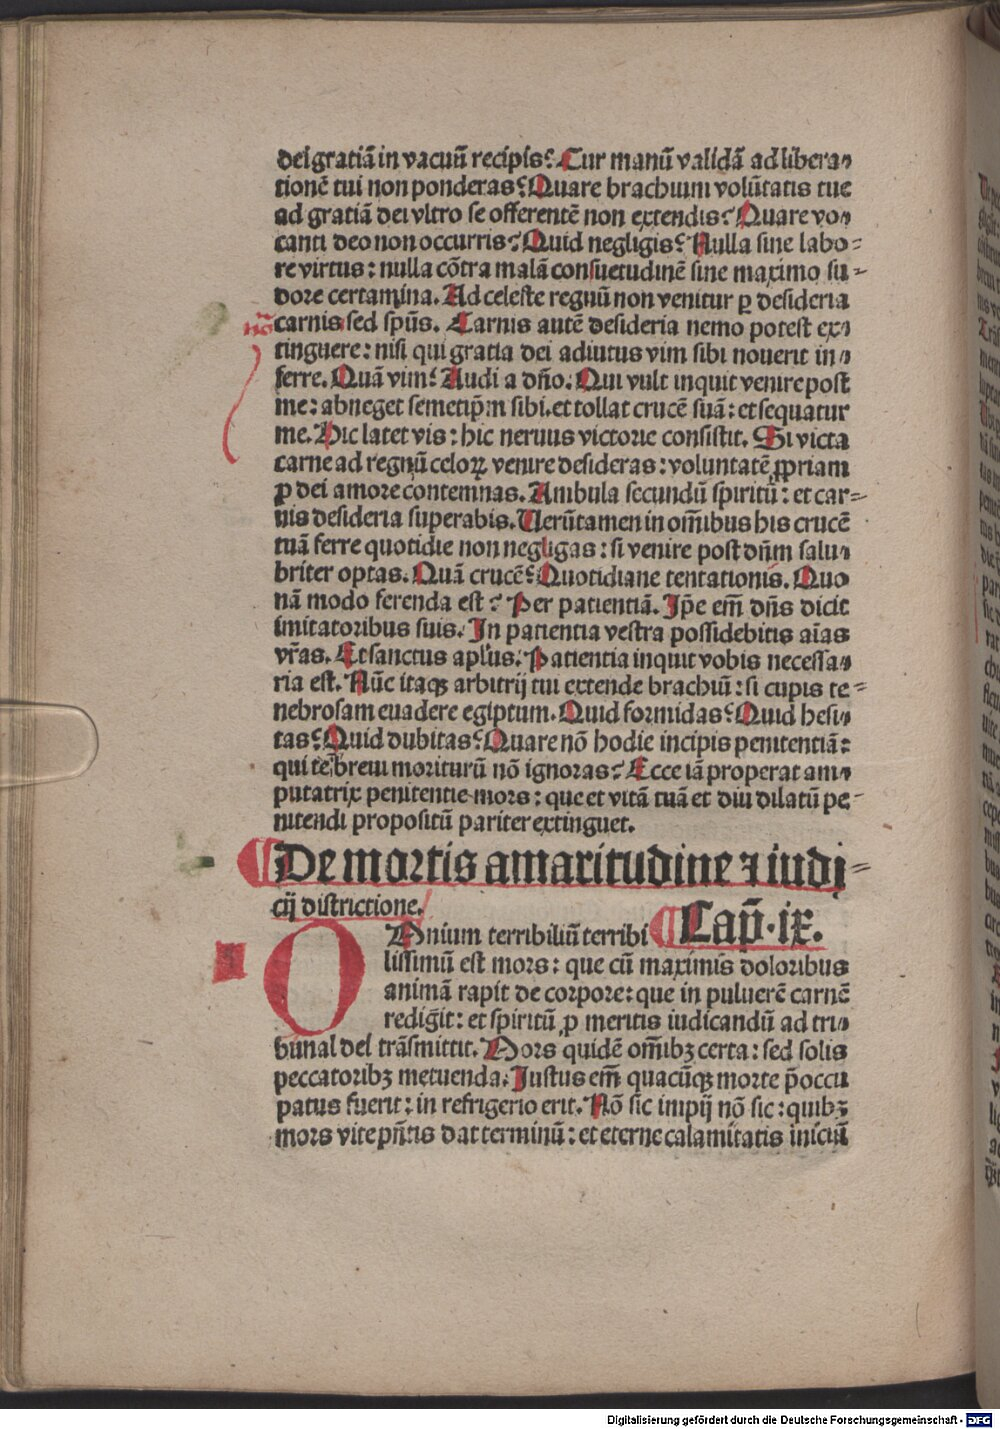 dei gratiā in vacuū recipis? Cur manū validā ad libera⸗
tionē tui non ponderas? Quare brachium volūtatis tue
ad gratiā dei vltro se offerentē non extendis? Quare vo⸗
canti deo non occurris? Quid negligis? Nulla sine labo⸗
re virtus: nulla cōtra malā consuetudinē sine maximo su⸗
dore certamina. Ad celeste regnū non venitur ꝑ desideria
nō carnis sed spūs. Carnis autē desideria nemo potest ex⸗
tinguere: nisi qui gratia dei adiutus vim sibi nouerit in⸗
ferre. Quā vim? Audi a dño. Qui vult inquit venire post
me: abneget semetip̄m sibi. et tollat crucē suā: et sequatur
me. Hic latet vis: hic neruus victorie consistit. Si victa
carne ad regnū celoꝝ venire desideras: voluntatē ꝓpriam
ꝓ dei amore contemnas. Ambula secundū spiritū: et car⸗
nis desideria superabis. Verūtamen in om̄ibus his crucē
tuā ferre quotidie non negligas: si venire post dñm salu⸗
briter optas. Quā crucē? Quotidiane tentationis. Quo
nā modo ferenda est? Per patientiā. Ip̄e em̄ dñs dicit
imitatoribus suis. In patientia vestra possidebitis aīas
vr̄as. Et sanctus apl'us. Patientia inquit vobis necessa⸗
ria est. Nūc itaqꝫ arbitrij tui extende brachiū: si cupis te⸗
nebrosam euadere egiptum. Quid formidas? Quid hesi⸗
tas? Quid dubitas? Quare nō hodie incipis penitentiā:
qui te breui moriturū nō ignoras? Ecce iā properat am⸗
putatrix penitentie mors: que et vitā tuā et diu dilatū pe⸗
nitendi propositū pariter extinguet.
¶ De mortis amaritudine ⁊ iudi⸗
cij districtione.
¶ Cap̄. ix.
OMnium terribiliū terribi
lissimū est mors: que cū maximis doloribus
animā rapit de corpore: que in puluerē carnē
redigit: et spiritū ꝓ meritis iudicandū ad tri⸗
bunal dei trāsmittit. Mors quidē om̄ibꝫ certa: sed solis
peccatoribꝫ metuenda. Iustus em̄ quacūqꝫ morte p̄occu
patus fuerit: in refrigerio erit. Nō sic impij nō sic: quibꝫ
mors vite pn̄tis dat terminū: et eterne calamitatis iniciū
Digitalisierung gefördert durch die Deutsche Forschungsgemeinschaft - DFG